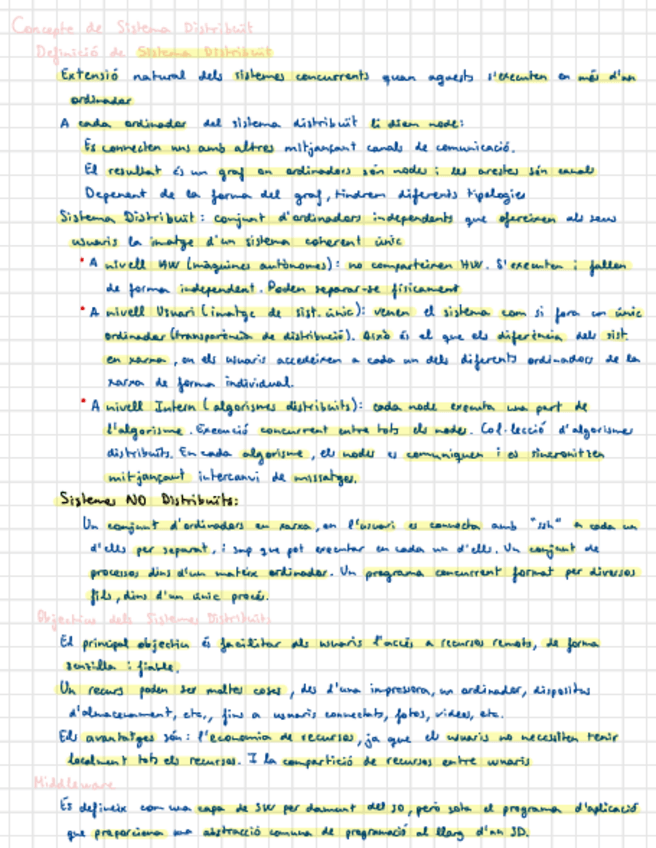 Concepte de Sistema Distribuït
Definició de Sistema Distribuït
Extensió natural dels sistemes concurrents quan aquests s'executen en més d'un
ordinador
A cada ordinador del sistema distribuït li diem node:
Es connecten uns amb altres mitjançant canals de comunicació.
El resultat és un graf on ordinadors són nodes i les arestes són canals
Depenent de la forma del graf, tindrem diferents tipologies
Sistema Distribuït: conjunt d'ordinadors independents que ofereixen als seus
usuaris la imatge d'un sistema coherent únic
• A nivell HW (màquines autònomes): no comparteixen HW. S'executen i fallen
de forma independent. Poden separar-se físicament
• A nivell Usuari (imatge de sist. únic): veuen el sistema com si fora un únic
ordinador (transparència de distribució). Això és el que els diferència dels sist.
en xarxa, on els usuaris accedeixen a cada un dels diferents ordinadors de la
xarxa de forma individual.
• A nivell Intern (algorismes distribuïts): cada node executa una part de
l'algorisme. Execució concurrent entre tots els nodes. Col·lecció d'algorismes
distribuïts. En cada algorisme, els nodes es comuniquen i es sincronitzen
mitjançant intercanvi de missatges.
Sistemes NO Distribuïts:
Un conjunt d'ordinadors en xarxa, on l'usuari es connecta amb "ssh" a cada un
d'ells per separat, i sap que pot executar en cada un d'ells. Un conjunt de
processos dins d'un mateix ordinador. Un programa concurrent format per diversos
fils, dins d'un únic procés.
Objectius dels Sistemes Distribuïts
El principal objectiu és facilitar als usuaris l'accés a recursos remots, de forma
senzilla i fiable.
Un recurs poden ser moltes coses, des d'una impressora, un ordinador, dispositius
d'almacenament, etc., fins a usuaris connectats, fotos, vídeos, etc.
Els avantatges són: l'economia de recursos, ja que els usuaris no necessiten tenir
localment tots els recursos. I la compartició de recursos entre usuaris
Middleware
Es defineix com una capa de SW per damunt del SO, però sota el programa d'aplicació
que proporciona una abstracció comuna de programació al llarg d'un SD.